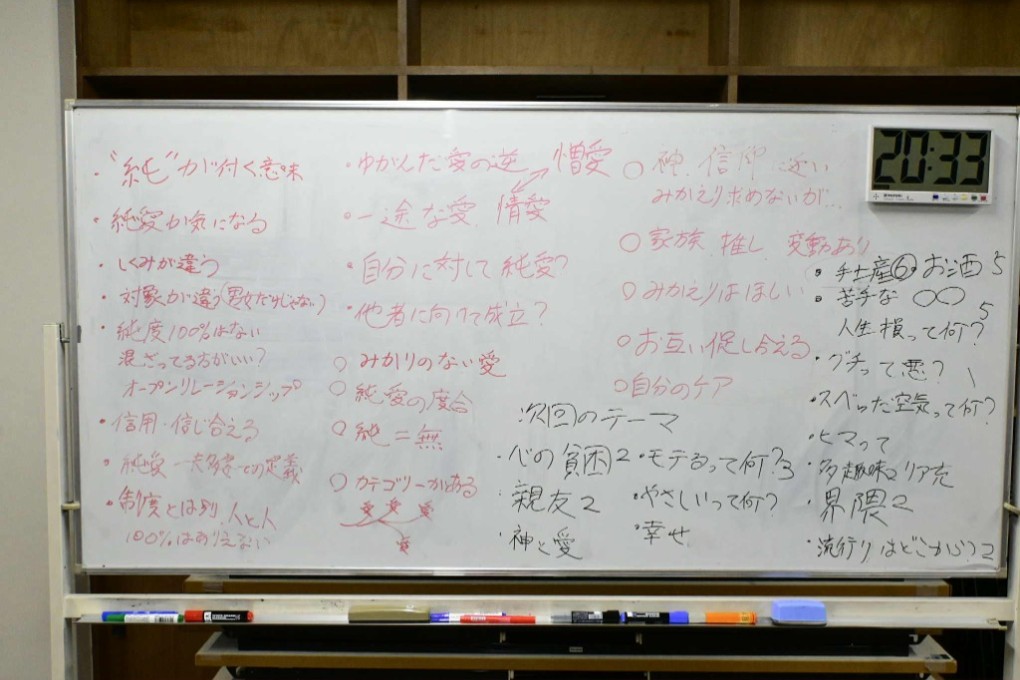 ・"純"が付く意味
・純愛が気になる
・しくみが違う
・対象が違う(男女だけじゃない)
・純度100%はない
混ざってる方がいい?
オープンリレーションシップ
・信用・信じ合える
・純愛 一夫多妻での定義
・制度とは別、人と人
100%はありえない
・ゆがんだ愛の逆
憎愛
・一途な愛、情愛
・自分に対して純愛?
・他者に向けて成立?
○みかりのない愛
○純愛の度合
○純=無
○カテゴリーがある
○神、信仰 近い
みかえり求めないが…
○家族、推し、変動あり
○みかえりはほしい
○お互い促し合える
○自分のケア
次回のテーマ
・心の貧困2
・親友2
・神と愛
・モテるって何?3
・やさしいって何?
・幸せ
20:33
・手土産⑥・お酒5
・苦手な○○
5
人生損って何?
・グチって悪?
・スベった空気って何?
・ヒマって
・多趣味とリア充
・界隈2
・流行りはどこから?2